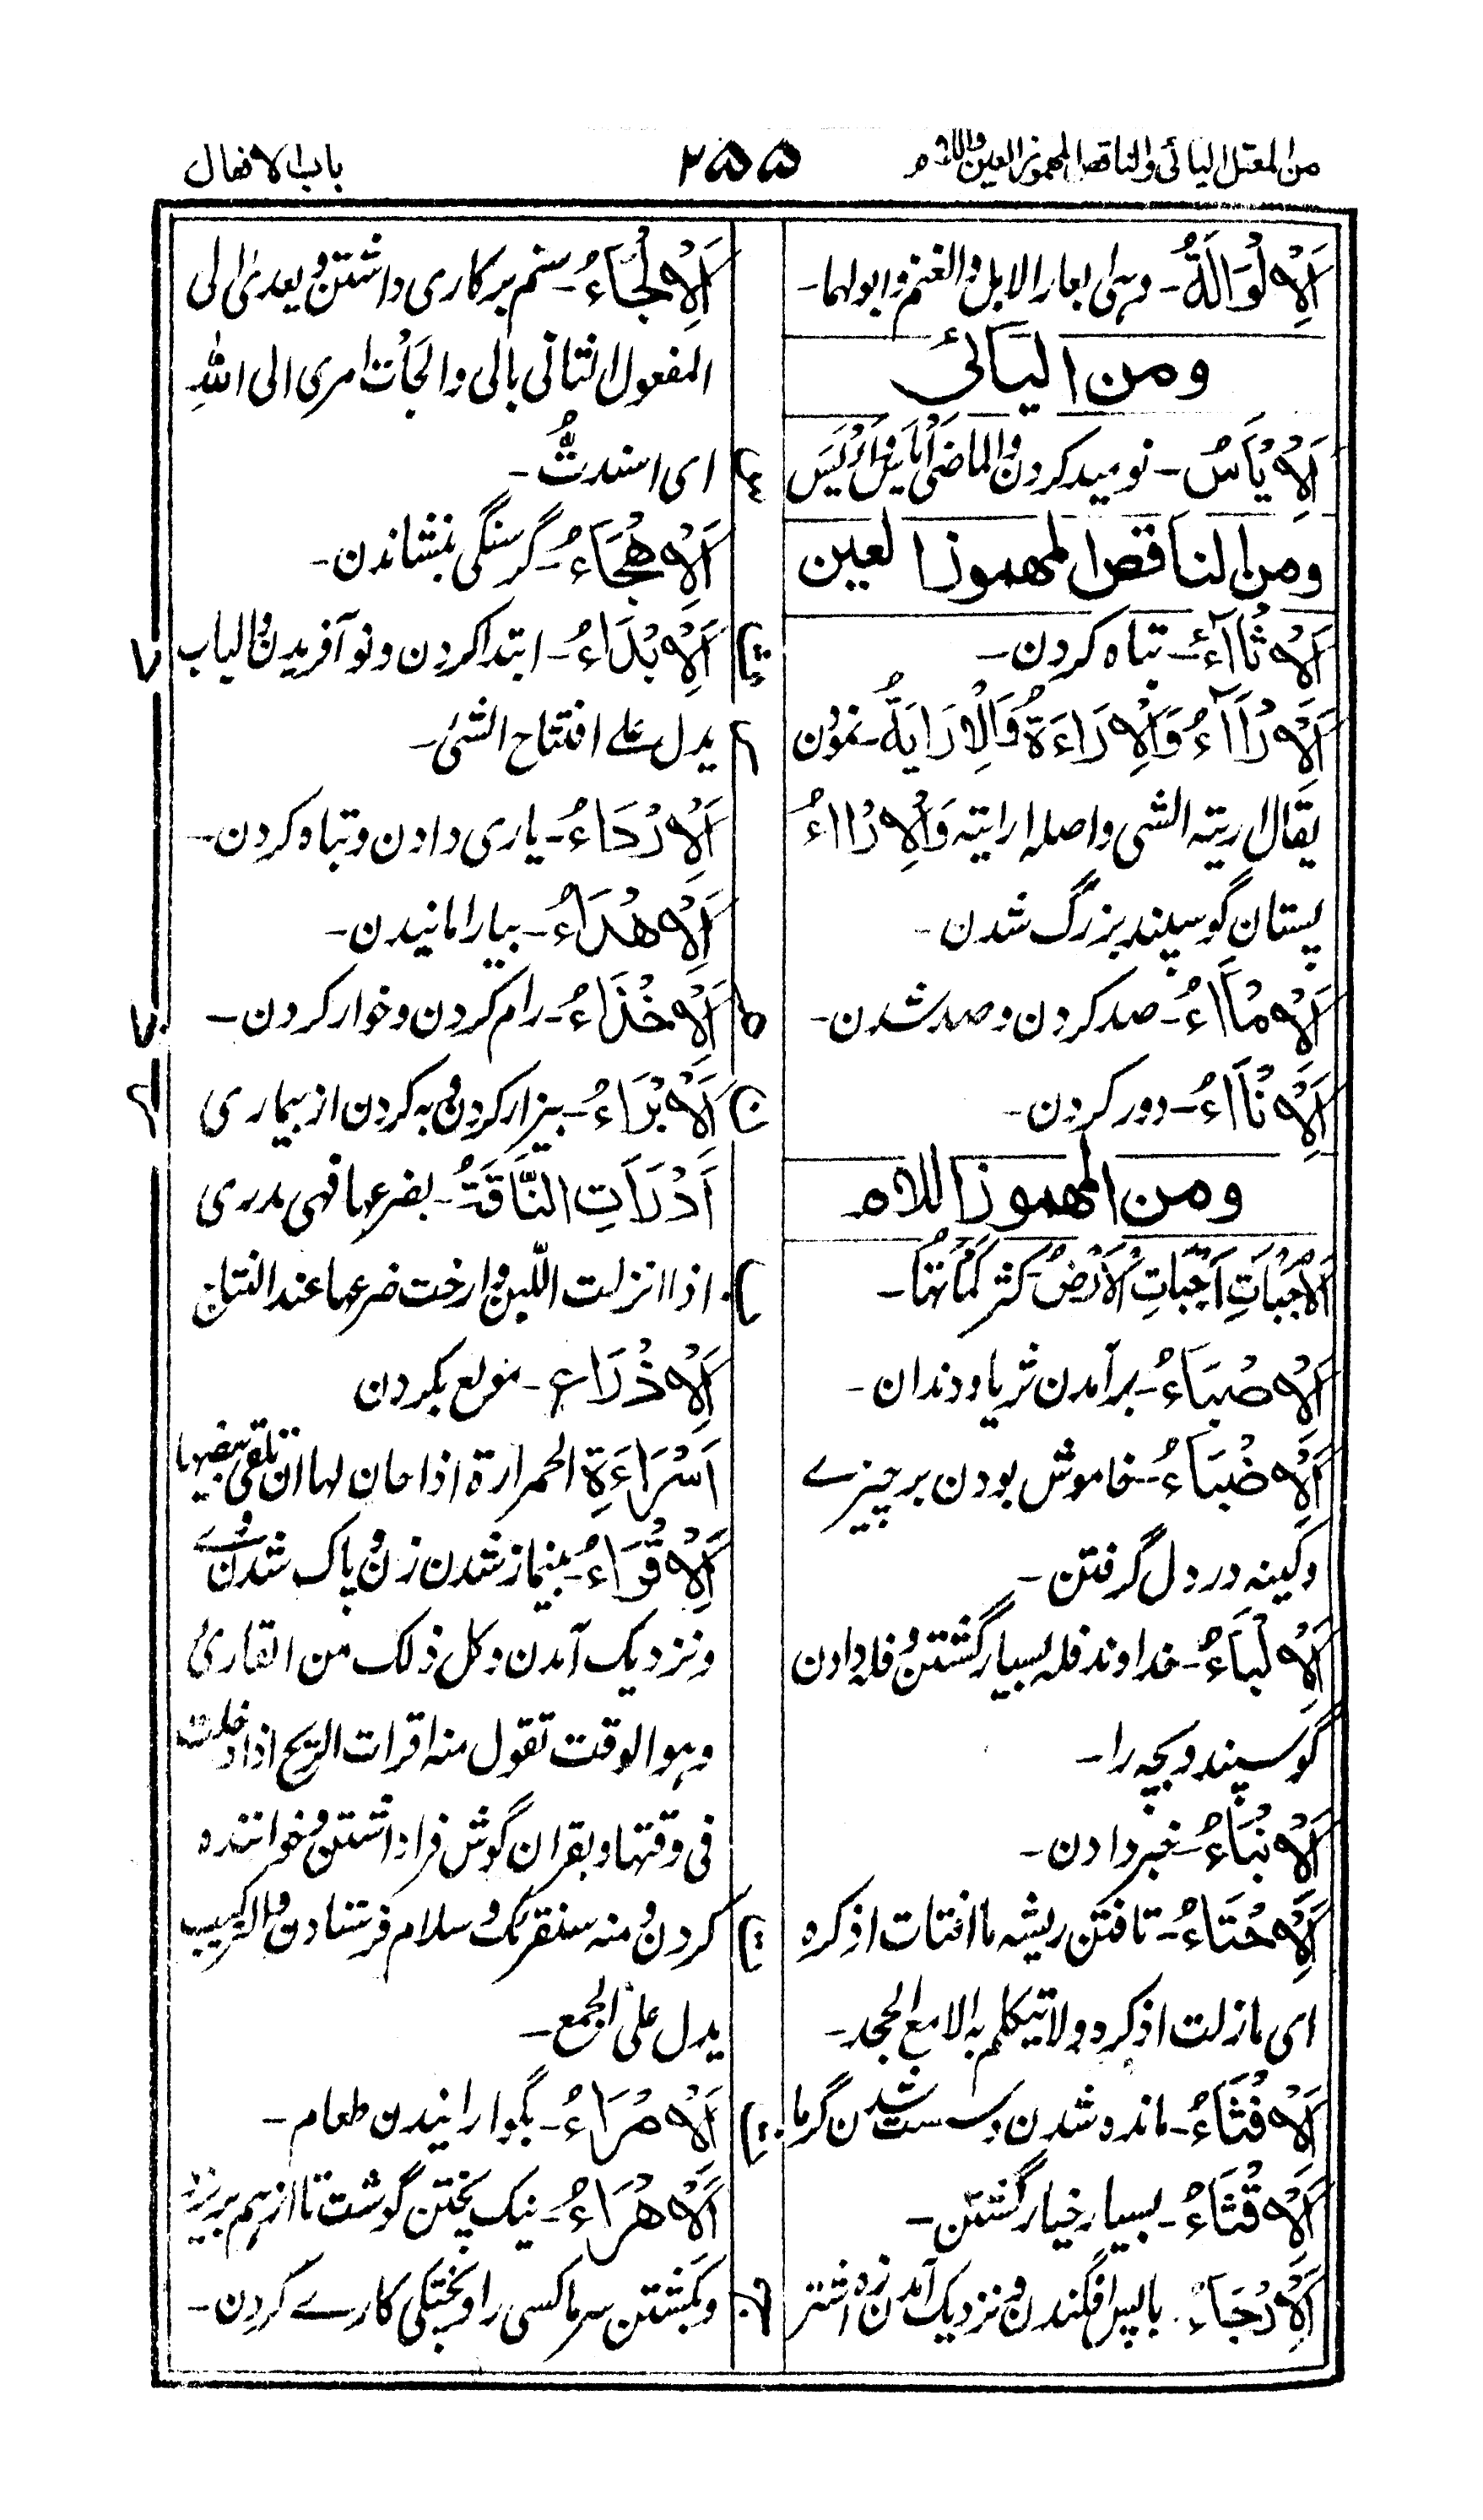 من المعتل الیائی والناقص المهموز العین واللام
۲۵۵
باب الافعال
اَلْاِلْوَالَةُ- وہی ابعار الابل والغنم وابوالہا-
ومن الیائی
اَلْاِیْاَسُ- نومید کردن والماضی اَیْاَسَ واَوْیَسَ
ومن الناقص المهموز العین
اَلْاِثْاآءُ- تباہ کردن-
اَلْاِرْاَآءُ وَالْاِرَاءَةُ وَالْاِرَایَةُ- نمودن
یقال اریتہ الشی واصلہ ارایتہ وَالْاِرْااءُ
پستان گوسپند بزرگ شدن-
اَلْاِمْاَاءُ- صد کردن وصد شدن-
اَلْاِنْاَاءُ- دور کردن-
ومن المهموز اللام
اَلْاِجْبَاءُ اَجْبَاَتِ الْاَرْضُ کثر کَمْأَتُہَا-
اَلْاِصْبَاءُ- برآمدن ثریا ودندان-
اَلْاِضْبَاءُ- خاموش بودن بر چیزے
وکینہ در دل گرفتن-
اَلْاِلْبَاءُ- خداوند فلہ بسیار گشتن وفلہ دادن
گوسپند وبچہ را-
اَلْاِنْبَاءُ- خبر دادن-
اَلْاِحْتَاءُ- تافتن ریشہ ما افتات اذکرہ
ای مازلت اذکرہ ولا تتکلم بہ الا مع الجحد-
اَلْاِفْثَاءُ- ماندہ شدن وسست شدن گرما
اَلْاِقْثَاءُ- بسیار خیار گشتن-
اَلْاِرْجَاءُ- باپس افگندن ونزدیک آمدن زہ اشتر
اَلْاِلْجَاءُ- ستم بر کاری داشتن ویعدی الی
المفعول الثانی بالی والجأت امری الی اللہِ
ای اسندتُّ-
اَلْاِهْجَاءُ- گرسنگی بنشاندن-
اَلْاِبْدَاءُ- ابتدا کردن ونو آفریدن والباب
یدل علے افتتاح الشی-
اَلْاِرْدَاءُ- یاری دادن وتباہ کردن-
اَلْاِهْدَاءُ- بیارامانیدن-
اَلْاِخْذَاءُ- رام کردن وخوار کردن-
اَلْاِبْرَاءُ- بیزار کردن وبہ کردن از بیماری
اَدْرَأَتِ النَّاقَةُ- بضرعہا فہی مدری
اذا انزلت اللّبن وارخت ضرعہا عند النتاج
اَلْاِذْرَاء- مولع بکردن
اَسْرَاءَةِ الجرارة اذا حان لہا ان تلقی بیضہا
اَلْاِقْرَاءُ- بینماز شدن زن وپاک شدن وے
ونزدیک آمدن وکل ذلک من القاری
وہو الوقت تقول منہ اقرات الریح اذا دخلت
فی وقتہا وبقران گوش فرا داشتن وخوانندہ
کردن ومنہ سنقرئک وسلام فرستادن والترکیب
یدل علی الجمع-
اَلْاِمْرَاءُ- بگوارانیدن طعام-
اَلْاِهْرَاءُ- نیک پختن گوشت تا از ہم بریزد
وبکشتن سرما کسی را وبختگی کارے کردن-